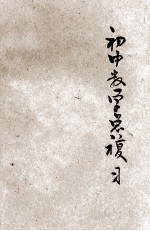 初中数学总複习